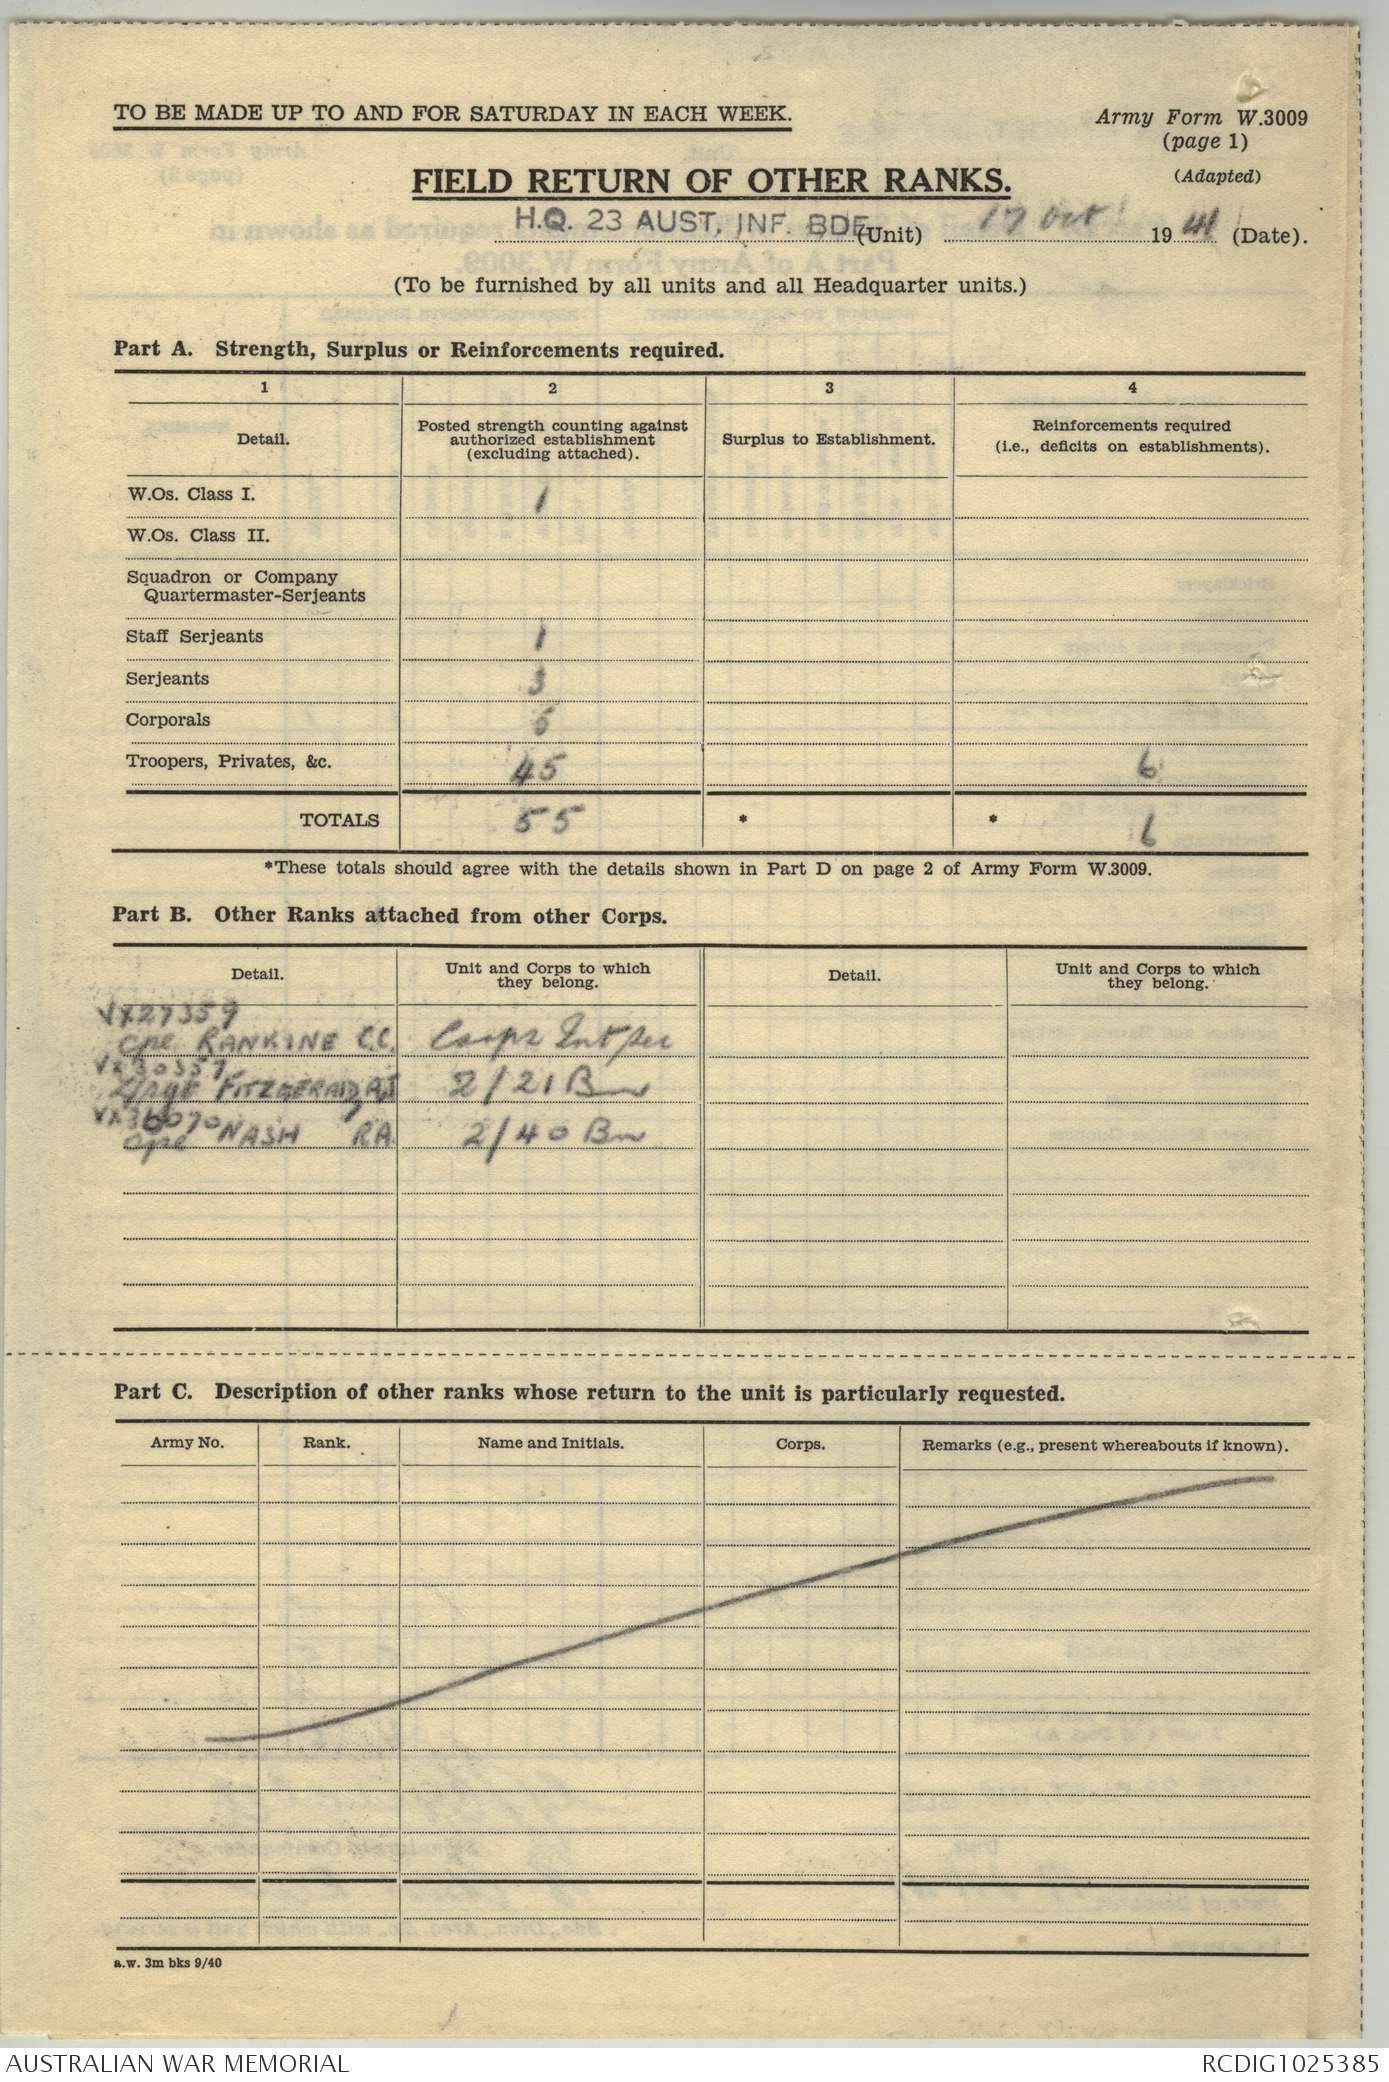 TO BE MADE UP TO AND FOR SATURDAY IN EACH WEEK.
Army Form W.3009
(page 1)
(Adapted)
FIELD RETURN OF OTHER RANKS.
H.Q. 23 AUST. INF. BDE (Unit) 17 Oct 1941 (Date).
(To be furnished by all units and all Headquarter units.)
Part A. Strength, Surplus or Reinforcements required.
1 2 3 4
Detail. Posted strength counting against authorized establishment (excluding attached). Surplus to Establishment. Reinforcements required (i.e., deficits on establishments).
W.Os. Class I. 1
W.Os. Class II.
Squadron or Company
Quartermaster-Serjeants
Staff Serjeants 1
Serjeants 3
Corporals 5
Troopers, Privates, &c. 45 6
TOTALS 55 * * 6
*These totals should agree with the details shown in Part D on page 2 of Army Form W.3009.
Part B. Other Ranks attached from other Corps.
Detail. Unit and Corps to which they belong. Detail. Unit and Corps to which they belong.
VX27359
Cpl RANKINE C.C. Corps Int Sec
VX30357
FITZGERALD A.J 2/21 Bn
VX36070
Cpl NASH R.A. 2/40 Bn
Part C. Description of other ranks whose return to the unit is particularly requested.
Army No. Rank. Name and Initials. Corps. Remarks (e.g., present whereabouts if known).
a.w. 3m bks 9/40
AUSTRALIAN WAR MEMORIAL RCDIG1025385